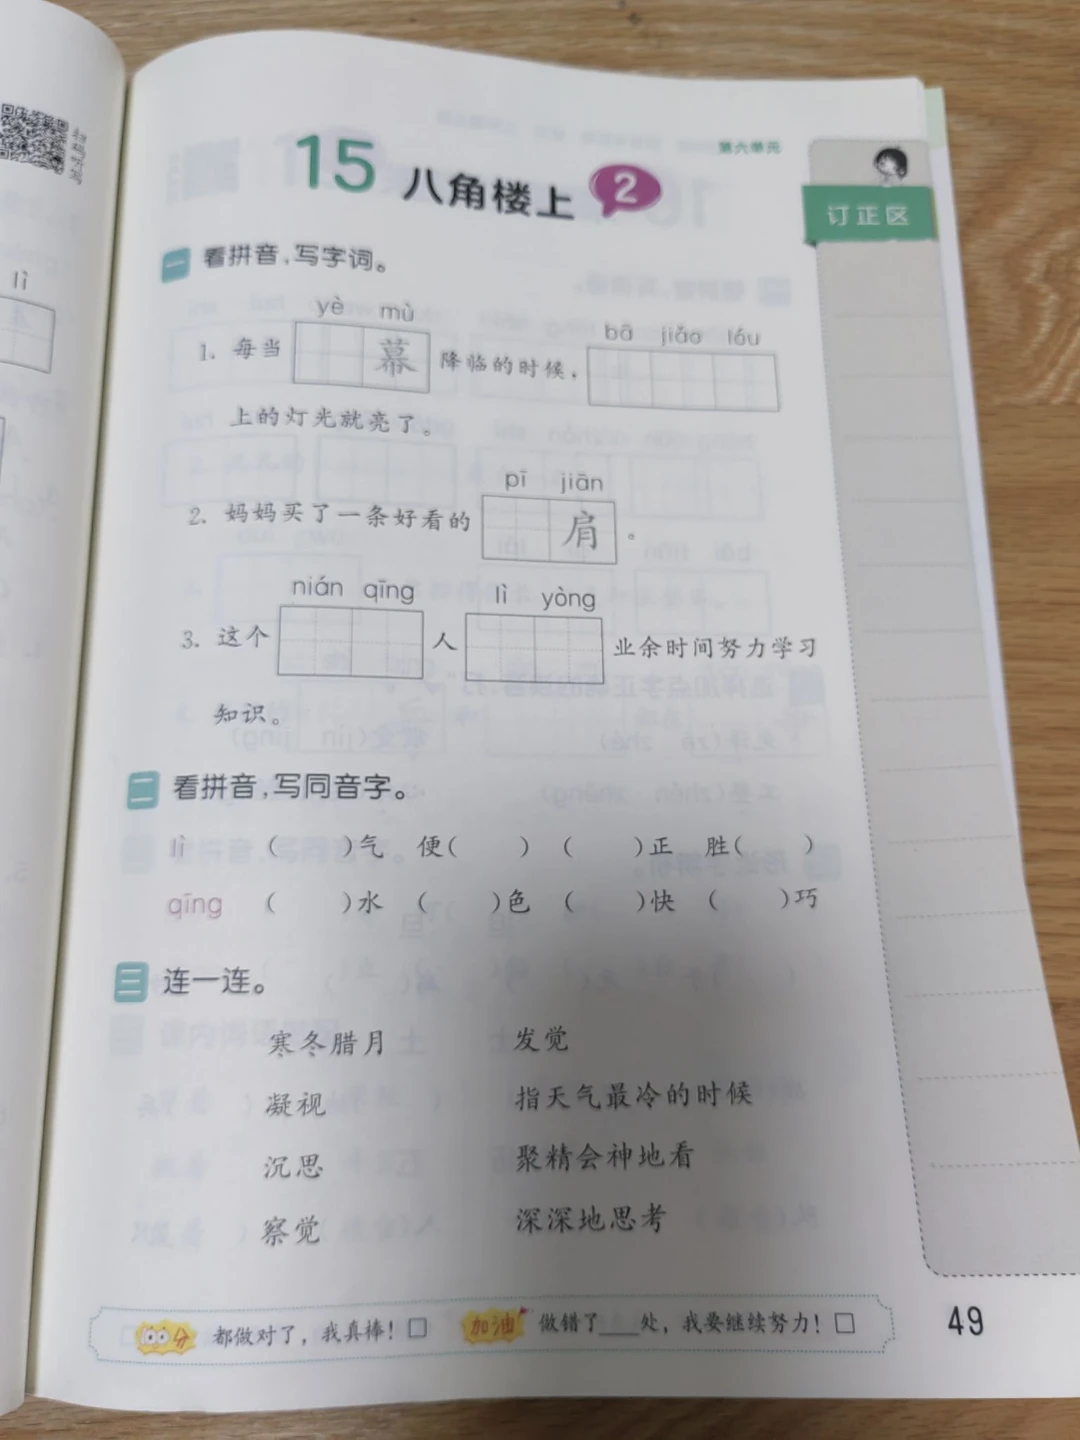 扫码听写
lì
第六单元
15 八角楼上 2
订正区
一 看拼音，写字词。
yè mù bā jiǎo lóu
1. 每当 幕 降临的时候，
上的灯光就亮了。
pī jiān
2. 妈妈买了一条好看的 肩 。
nián qīng lì yòng
3. 这个 人 业余时间努力学习
知识。
二 看拼音，写同音字。
lì （ ）气 便（ ） （ ）正 胜（ ）
qīng （ ）水 （ ）色 （ ）快 （ ）巧
三 连一连。
寒冬腊月 发觉
凝视 指天气最冷的时候
沉思 聚精会神地看
察觉 深深地思考
100分 都做对了，我真棒！□ 加油 做错了___处，我要继续努力！□
49